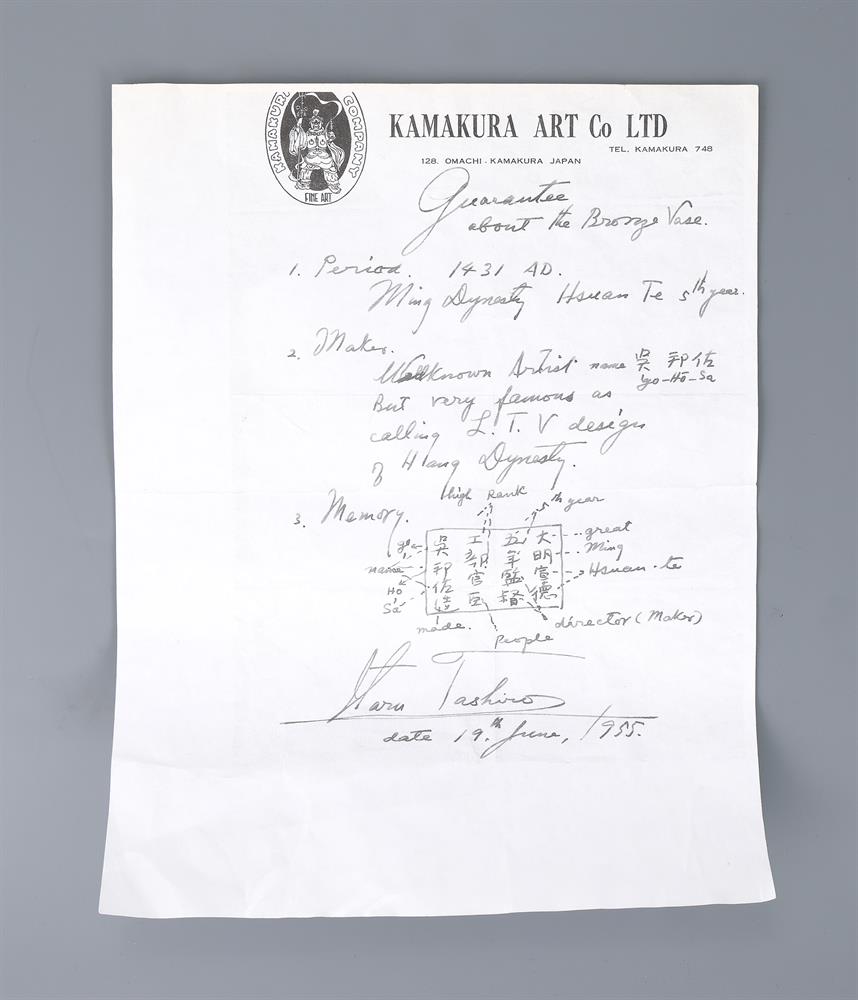 KAMAKURA COMPANY
FINE ART
KAMAKURA ART Co LTD
TEL. KAMAKURA 748
128. OMACHI - KAMAKURA JAPAN
Guarantee
about the Bronze Vase.
1. Period. 1431 AD.
Ming Dynesty Hsuan Te 5th year.
2. Maker.
Wellknown Artist name 吳邦佐
go-Hō-Sa
But very famous as
calling L. T. V design
of Hang Dynesty.
3. Memory.
High Rank
5th year
大明宣德
五年監督
工部官臣
吳邦佐造
great
Ming
Hsuan-te
director (Maker)
People
made.
go
name
Ho
Sa
Tashiro
date 19.th June, 1955.